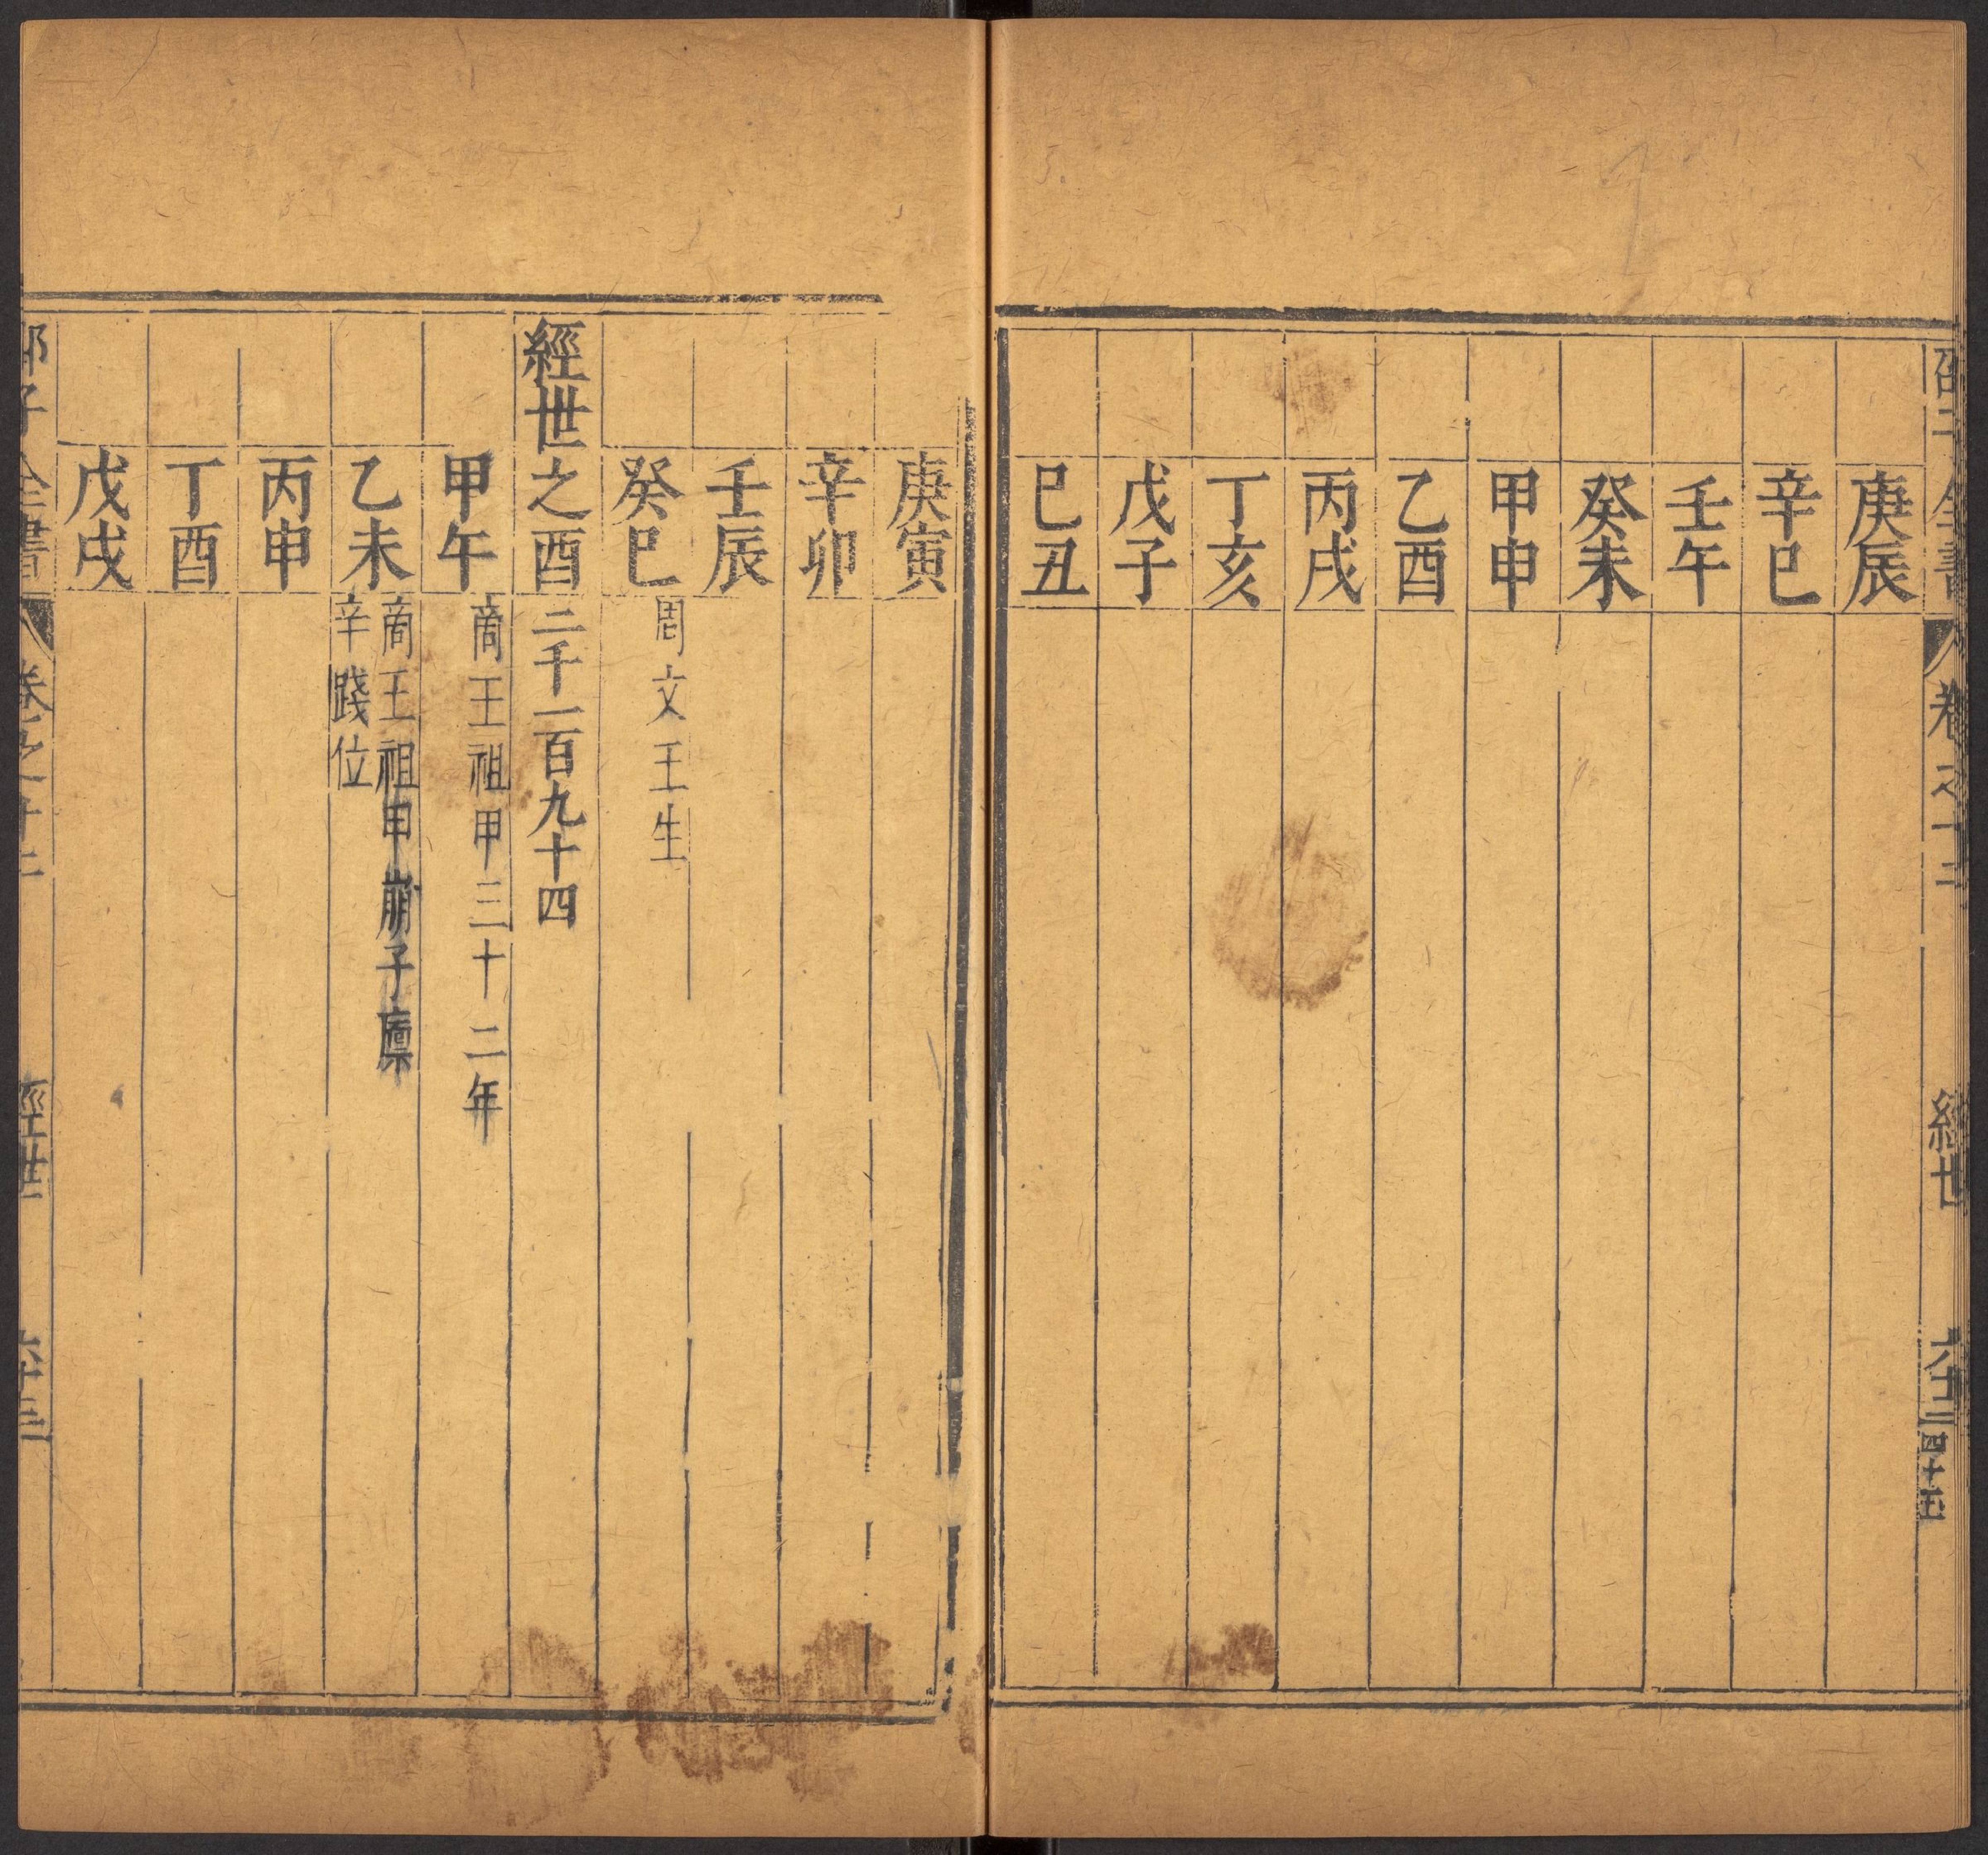 卷之十二
經世
六十二
四十五
庚辰
辛巳
壬午
癸未
甲申
乙酉
丙戌
丁亥
戊子
已丑
庚寅
辛卯
壬辰
癸巳 周文王生
經世之酉二千一百九十四
甲午 啇王祖甲三十二年
乙未 啇王祖甲崩子廩
辛踐位
丙申
丁酉
戊戌
子全書
卷之十二
經世
六十三